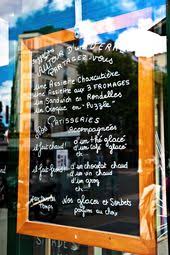 AUTOUR D'UN VERRE
PARTAGEZ-VOUS
une Assiette Charcutière
une Assiette aux 3 FROMAGES
un Sandwich en Rondelles
un Croque en "Puzzle"
Nos PATISSERIES
Accompagnées
il fait chaud! d'un thé glacé
d'un café glacé
il fait froid! d'un chocolat chaud
d'un vin chaud
d'un grog
Temps Nos glaces et Sorbets
parfum au choix